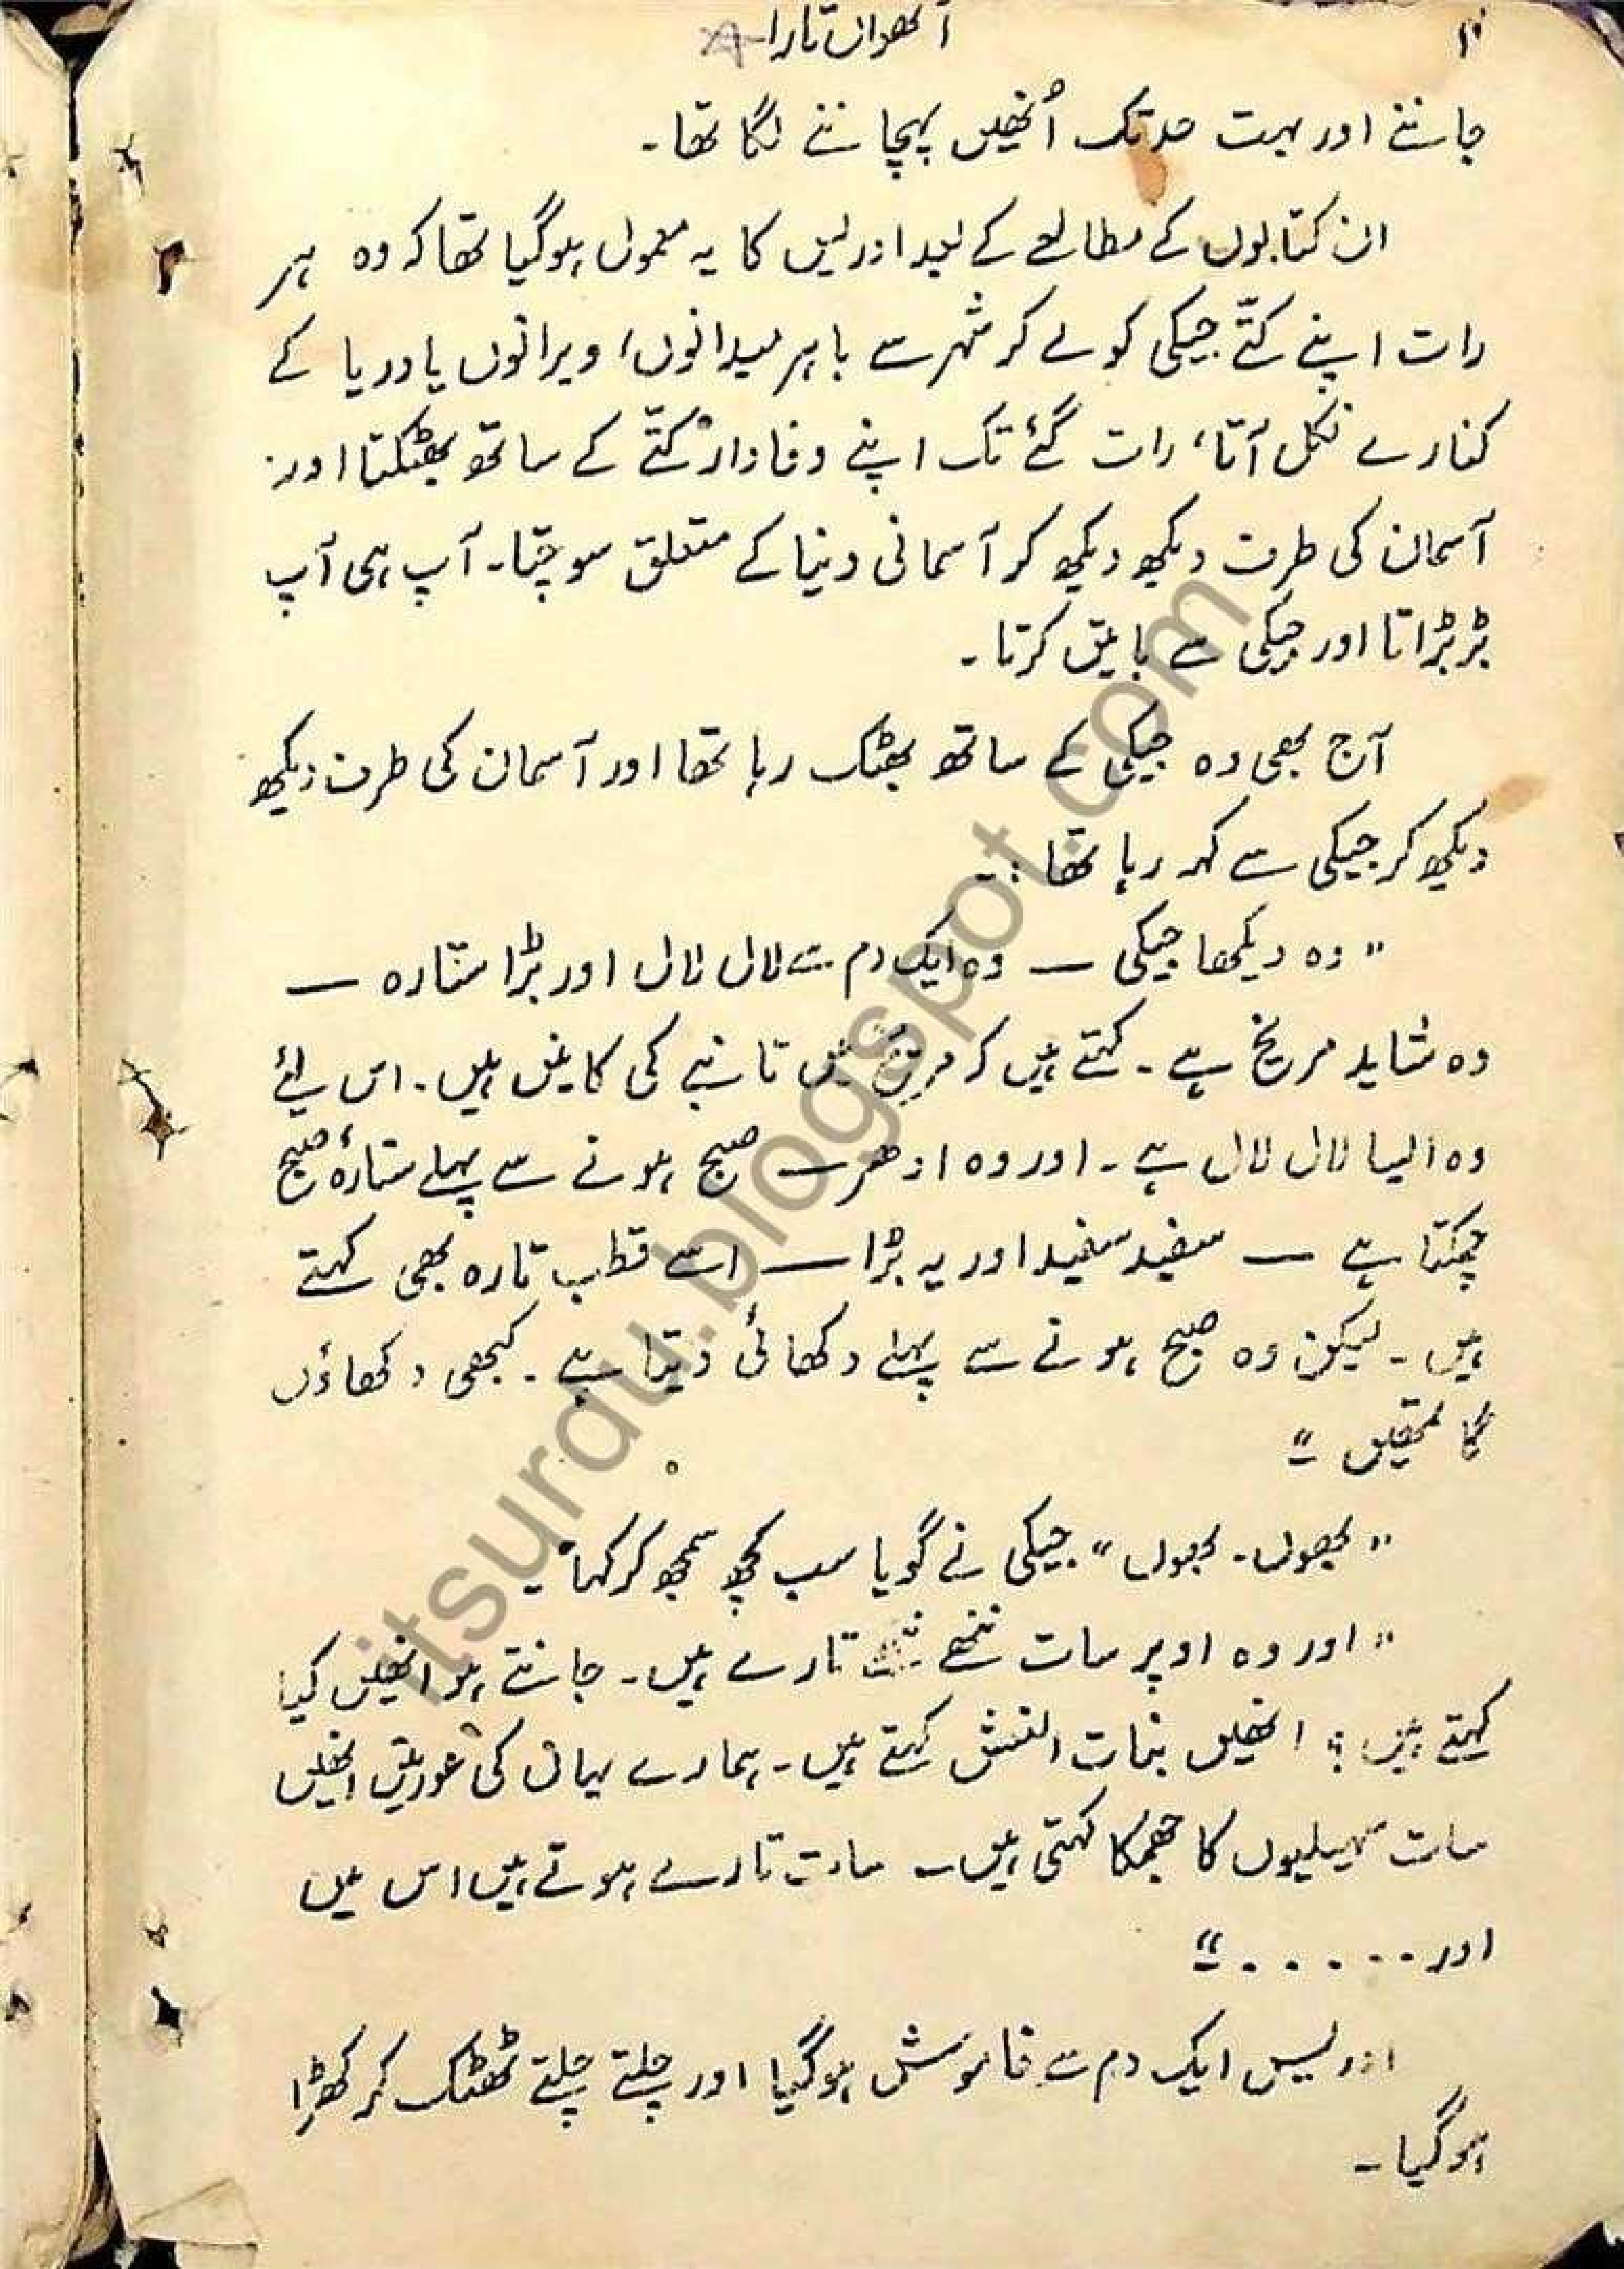 آٹھواں تارا
جاننے اور بہت حد تک اُنھیں پہچاننے لگا تھا۔
ان کتابوں کے مطالعے کے بعد ادریس کا یہ معمول ہوگیا تھا کہ وہ ہر
رات اپنے کتّے جیکی کو لے کر شہر سے باہر میدانوں، ویرانوں یا دریا کے
کنارے نکل آتا، رات گئے تک اپنے وفادار کتّے کے ساتھ بھٹکتا اور
آسمان کی طرف دیکھ دیکھ کر آسمانی دنیا کے متعلق سوچتا۔ آپ ہی آپ
بڑبڑاتا اور جیکی سے باتیں کرتا۔
آج بھی وہ جیکی کے ساتھ بھٹک رہا تھا اور آسمان کی طرف دیکھ
دیکھ کر جیکی سے کہہ رہا تھا :۔
" وہ دیکھا جیکی ــ وہ ایک دم سے لال لال اور بڑا ستارہ ــ
وہ شاید مریخ ہے۔ کہتے ہیں کہ مریخ میں تانبے کی کانیں ہیں۔ اس لئے
وہ ایسا لال لال ہے۔ اور وہ ادھر ــ صبح ہونے سے پہلے ستارۂ صبح
چمکتا ہے ــ سفید سفید اور یہ بڑا ــ اسے قطب تارہ بھی کہتے
ہیں۔ لیکن وہ صبح ہونے سے پہلے دکھائی دیتا ہے۔ کبھی دکھاؤں
گا تمھیں۔"
" بھوں۔ بھوں " جیکی نے گویا سب کچھ سمجھ کر کہا۔
" اور وہ اوپر سات ننھے ننھے تارے ہیں۔ جانتے ہو انھیں کیا
کہتے ہیں؟ انھیں بنات النعش کہتے ہیں۔ ہمارے یہاں کی عورتیں انھیں
سات سہیلیوں کا جھمکا کہتی ہیں۔ سات تارے ہوتے ہیں اس میں
اور ......"
ادریس ایک دم سے خاموش ہوگیا اور چلتے چلتے ٹھٹک کر کھڑا
ہوگیا۔
itsurdu.blogspot.com